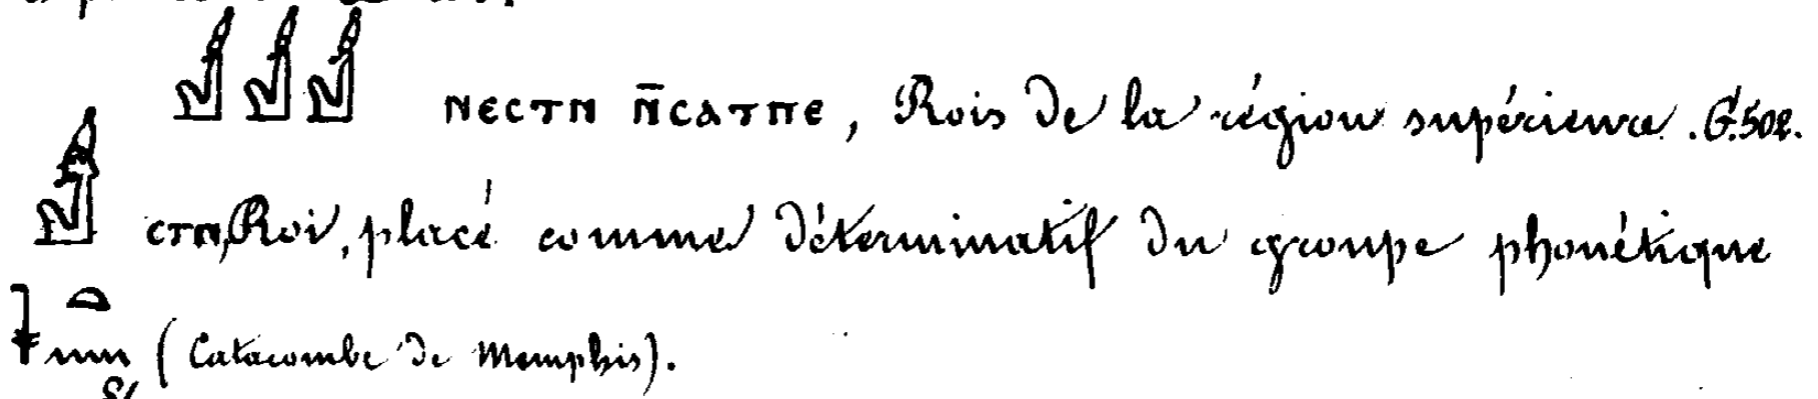 ⲛⲉⲥⲧⲛ ⲛ̄ⲥⲁⲧⲡⲉ, Rois de la région supérieure. G. 502.
ⲥⲧⲛ, Roi, placé comme déterminatif du groupe phonétique
𓇓𓏏𓈖 (Catacombe de Memphis).